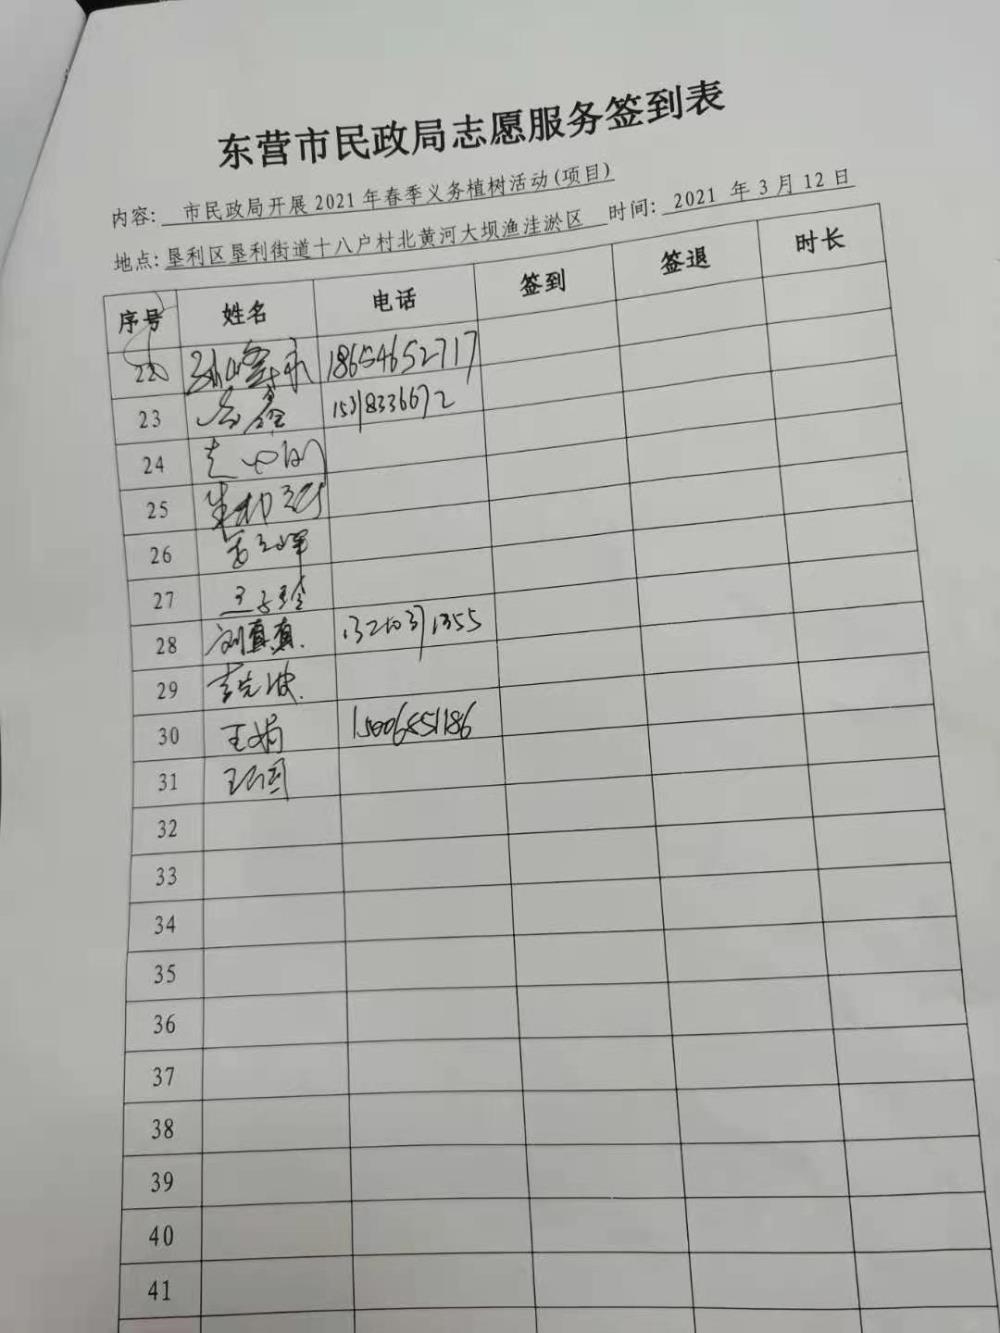 东营市民政局志愿服务签到表
内容: 市民政局开展2021年春季义务植树活动(项目)
地点: 垦利区垦利街道十八户村北黄河大坝渔洼淤区 时间: 2021 年 3 月 12 日
序号 姓名 电话 签到 签退 时长
22 18654652717
23 15318336672
24
25
26
27
28 刘真真
29
30 王娟 15006551186
31
32
33
34
35
36
37
38
39
40
41